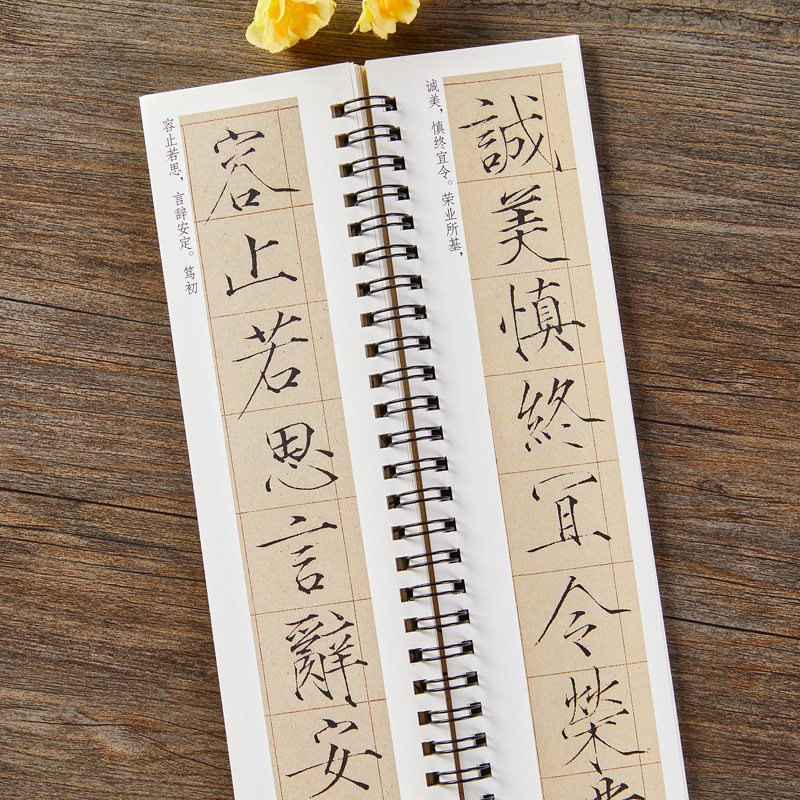 容止若思，言辞安定。笃初
容止若思言辭安
诚美，慎终宜令。荣业所基，
誠美慎終宜令榮